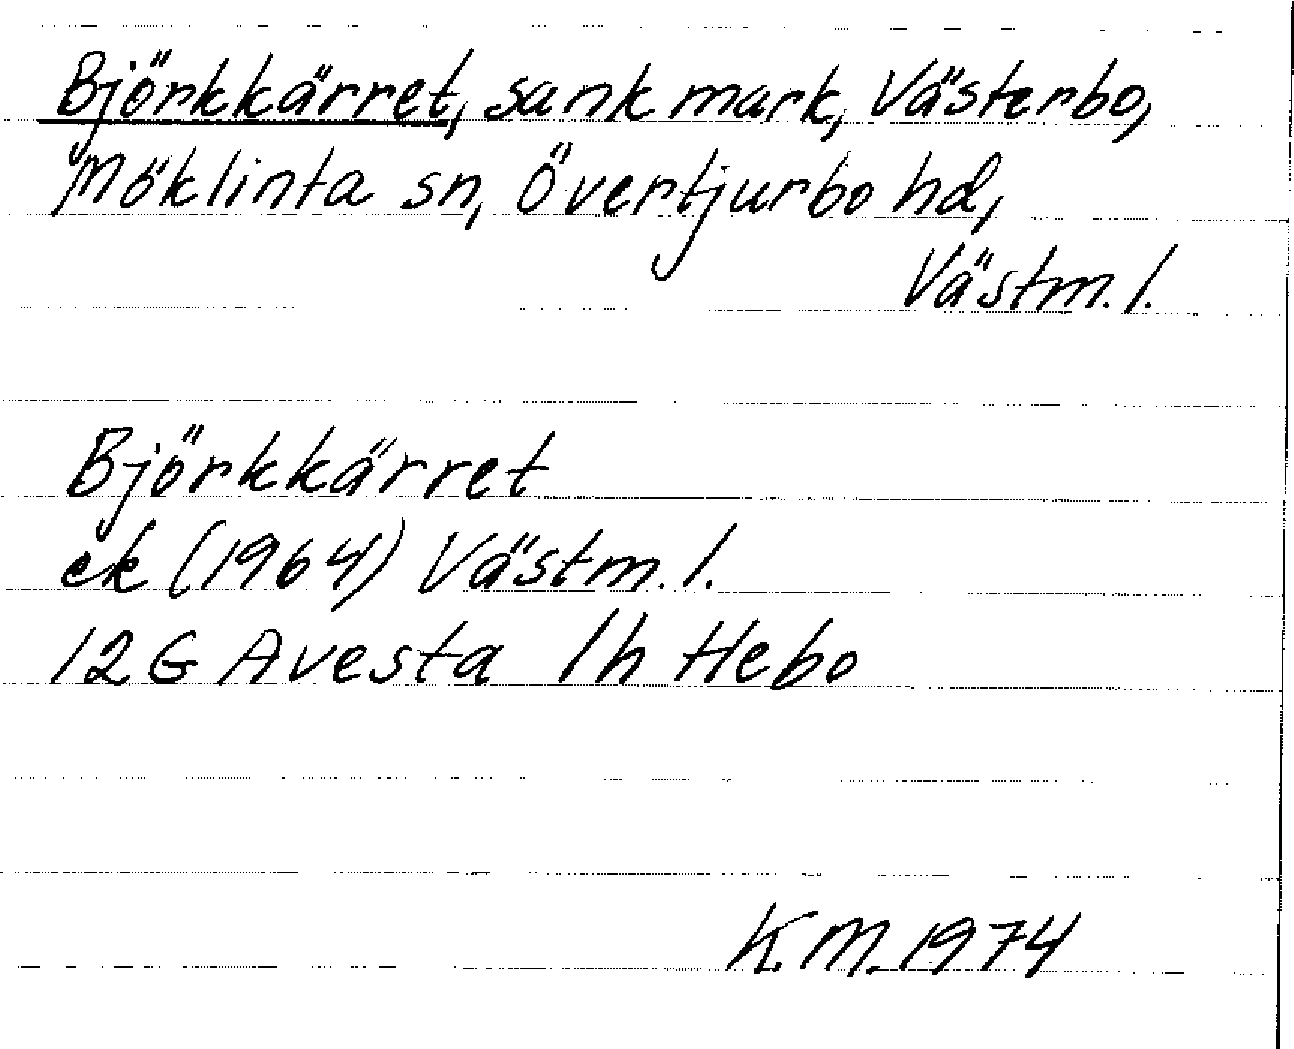 Björkkärret, sank mark, Västerbo,
Möklinta sn, Övertjurbo hd,
Västm. l.
Björkkärret
ek (1964) Västm. l.
12G Avesta 1h Hebo
K.M. 1974